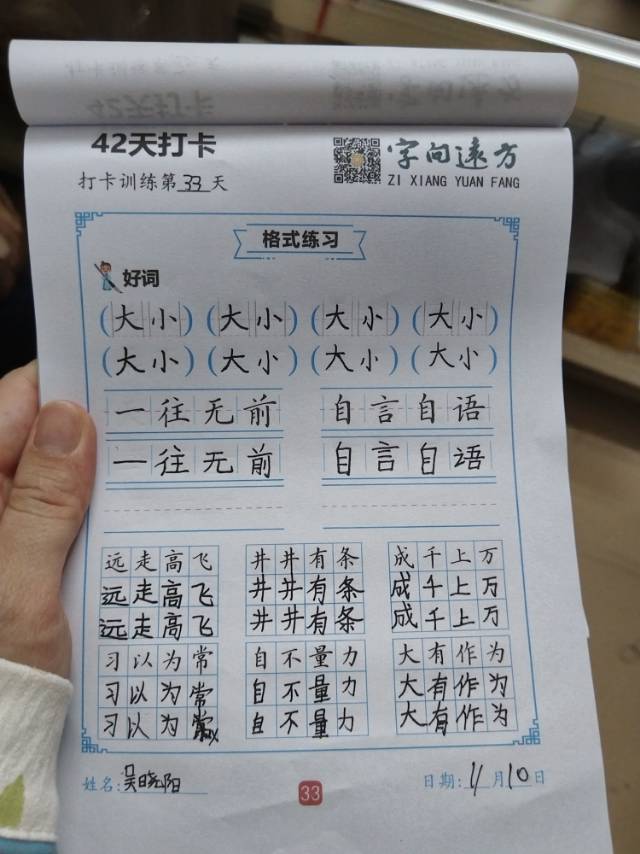 42天打卡
字向远方
打卡训练第33天
ZI XIANG YUAN FANG
格式练习
好词
(大小) (大小) (大小) (大小)
(大小) (大小) (大小) (大小)
一往无前 自言自语
一往无前 自言自语
远走高飞 井井有条 成千上万
远走高飞 井井有条 成千上万
远走高飞 井井有条 成千上万
习以为常 自不量力 大有作为
习以为常 自不量力 大有作为
习以为常 自不量力 大有作为
姓名:吴晓阳 33 日期:4月10日